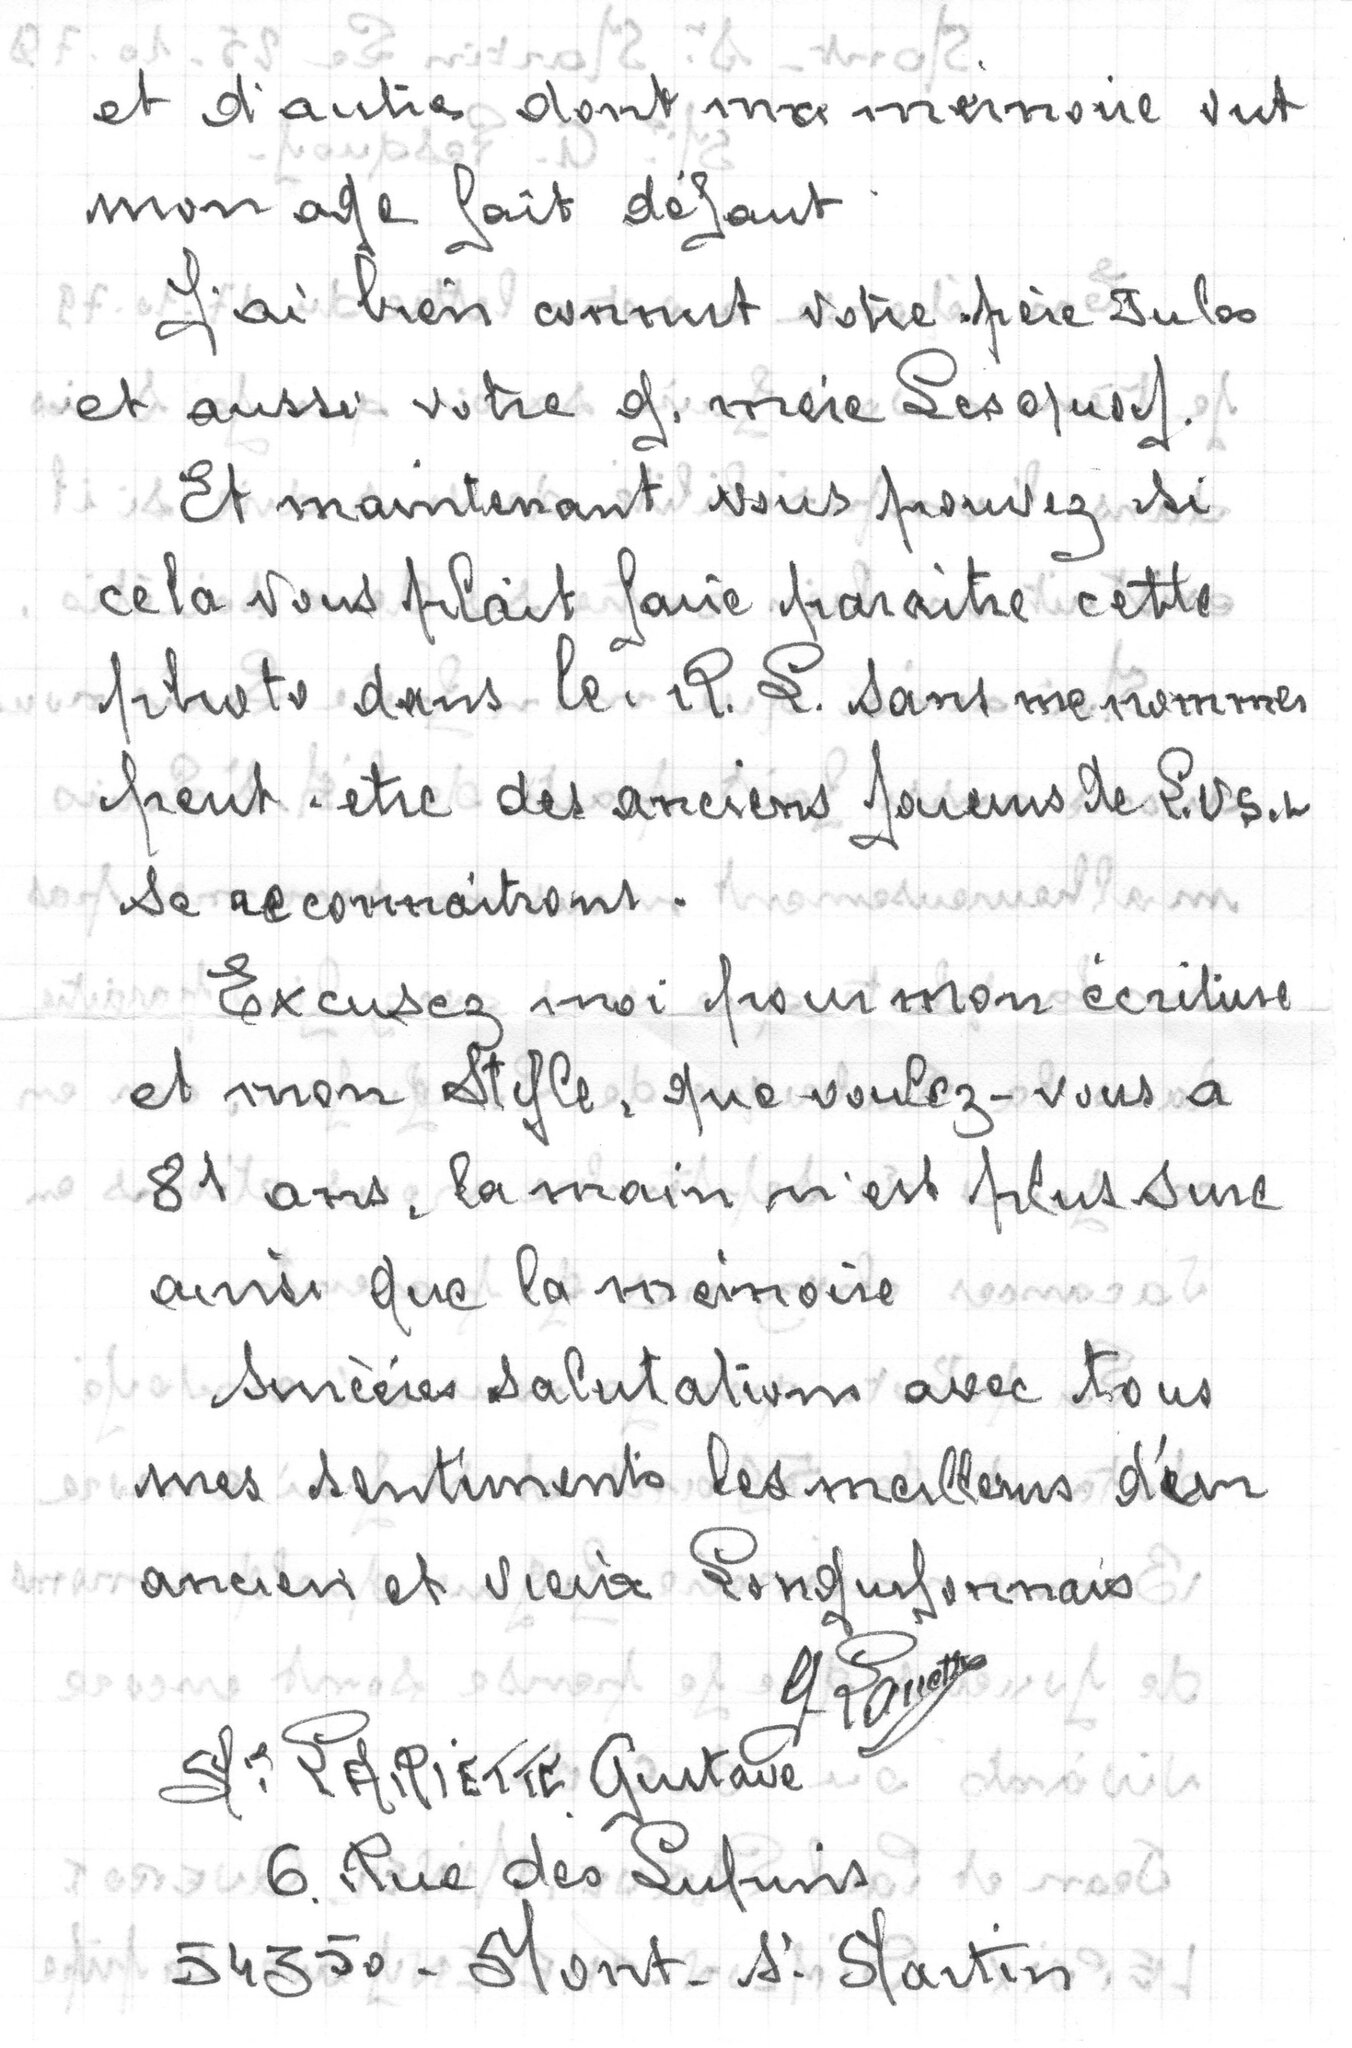 et d'autres dont ma mémoire vut
mon age fait défaut.
J'ai bien connut votre père Jules
et aussi votre g. mère Lesquoy.
Et maintenant vous pouvez si
cela vous plait faire paraitre cette
photo dans le R. L. sans me nommer
peut-etre des anciens joueurs de L.US.L
se reconnaîtront.
Excusez moi pour mon écriture
et mon style, que voulez-vous a
81 ans, la main n'est plus sure
ainsi que la mémoire
Sincères salutations avec tous
mes sentiments les meilleurs d'un
ancien et vieux Longuyonnais
Mr. Gustave
6. Rue des Lupins
54350 - Mont - St. Martin